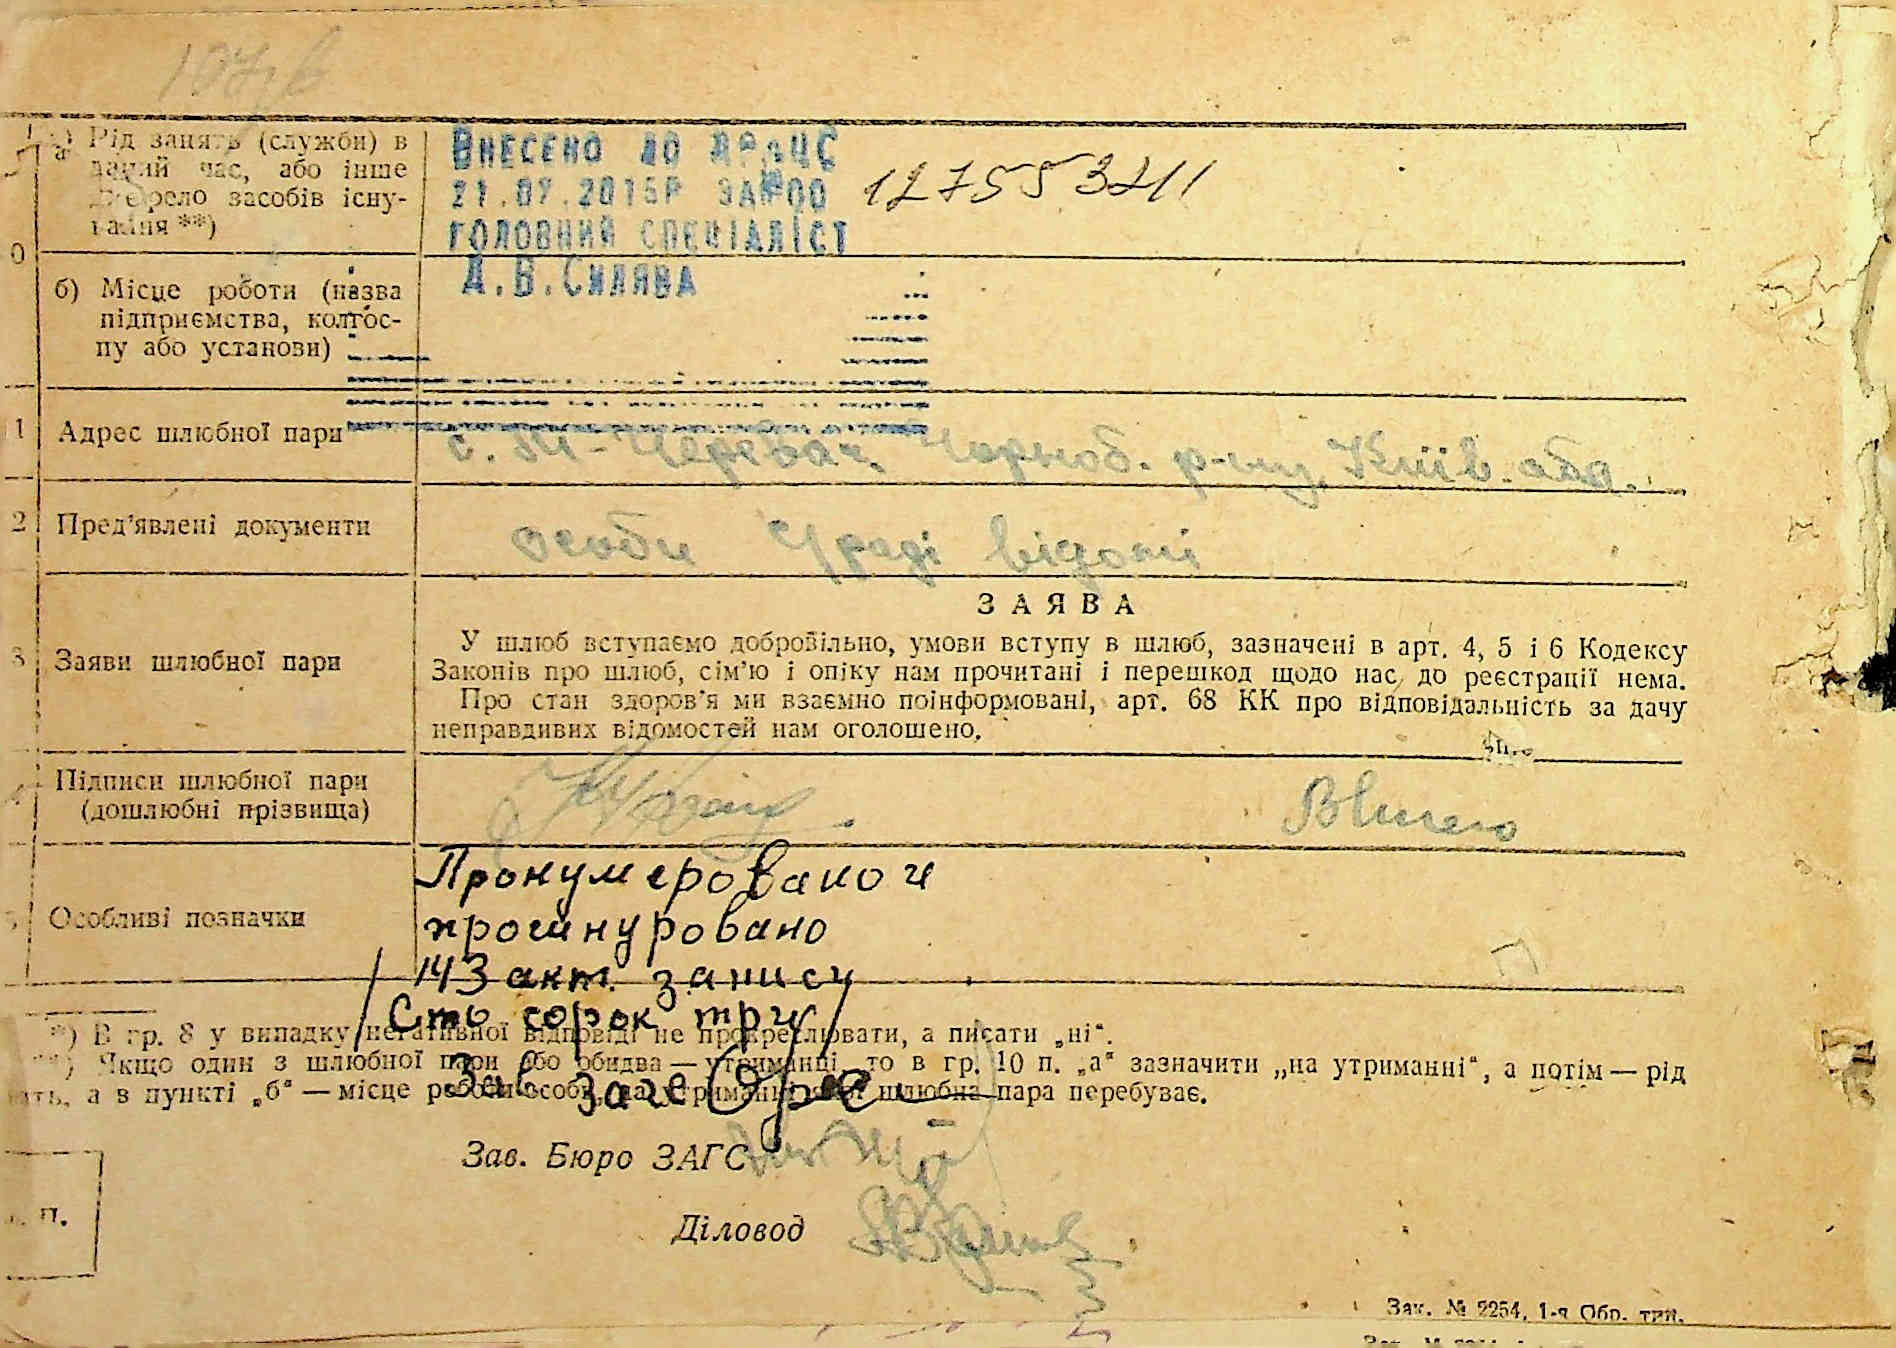 107зв
а) Рід занять (служби) в
даний час, або інше
джерело засобів існу-
вання **)
Внесено до ДРАЦС
21.07.2015р за №00 127553211
головний спеціаліст
А.В.Силява
0
б) Місце роботи (назва
підприємства, колгос-
пу або установи)
1 Адрес шлюбної пари с. М-Черевач Чорноб. р-ну, Київ. обл.
2 Пред’явлені документи особи Сраді відомі
ЗАЯВА
3 Заяви шлюбної пари
У шлюб вступаємо добровільно, умови вступу в шлюб, зазначені в арт. 4, 5 і 6 Кодексу
Законів про шлюб, сім’ю і опіку нам прочитані і перешкод щодо нас до реєстрації нема.
Про стан здоров’я ми взаємно поінформовані, арт. 68 КК про відповідальність за дачу
неправдивих відомостей нам оголошено.
4 Підписи шлюбної пари
(дошлюбні прізвища)
Пронумеровано и
5 Особливі позначки прошнуровано
143 акт. записи
Сто сорок три
*) В гр. 8 у випадку негативної відповіді не прокреслювати, а писати „ні“.
**) Якщо один з шлюбної пари або обидва — утриманці, то в гр. 10 п. „а“ зазначити „на утриманні“, а потім — рід
Зав загс
занять, а в пункті „б“ — місце роботи особи, на утриманні якої шлюбна пара перебуває.
Зав. Бюро ЗАГС
М. П.
Діловод
Зак. № 2254, 1-я Обр. тип.